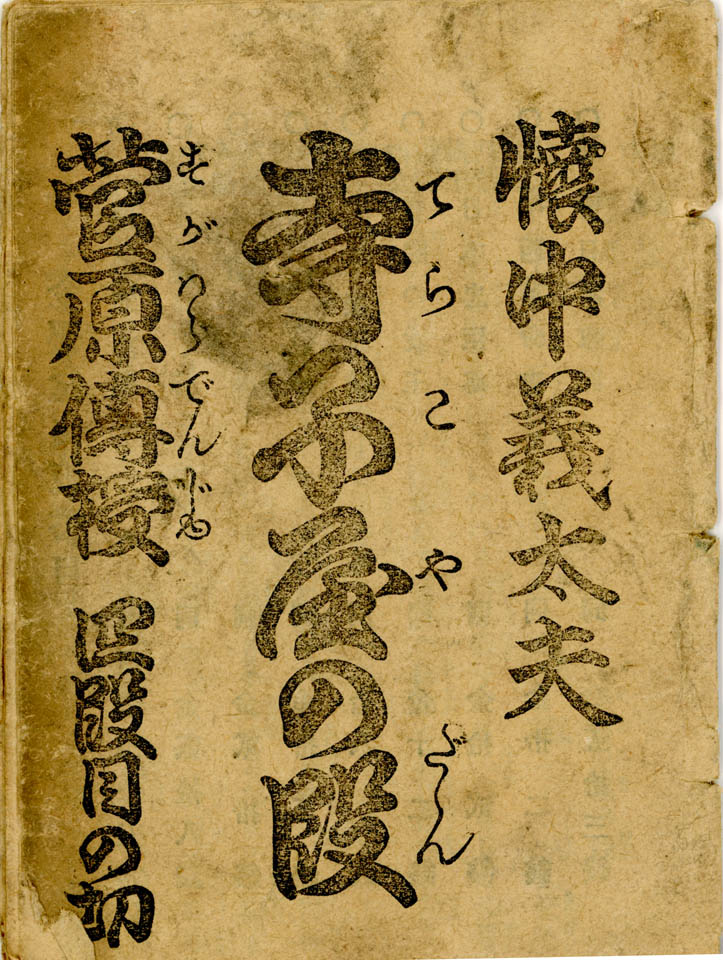 懐中義太夫
てらこやのだん
寺子屋の段
すがはらでんじゆ
菅原傳授 四段目の切